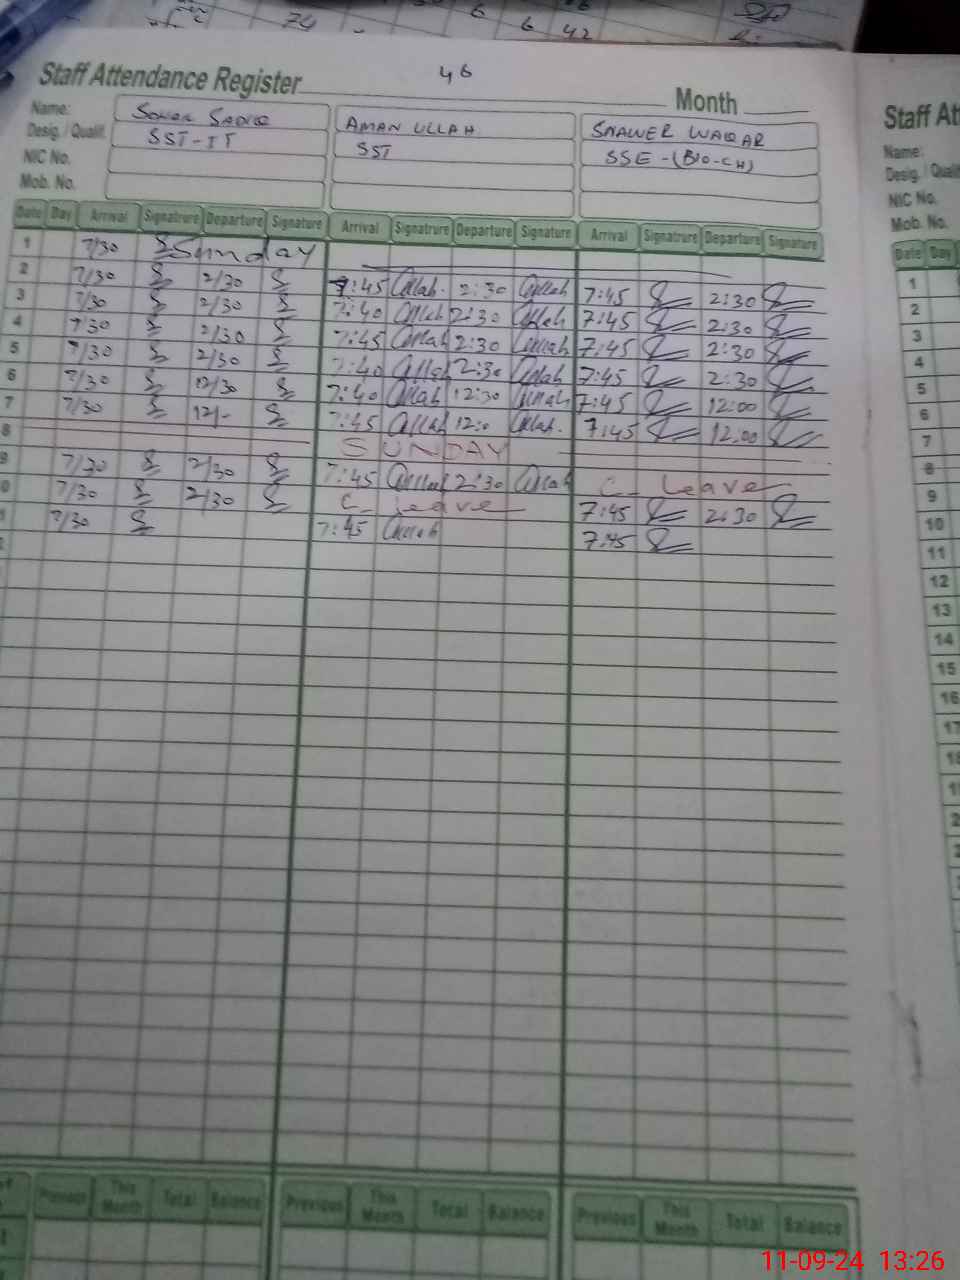 74
6
6 42
Staff Attendance Register 46 Month
Staff At
Name: SADIQ AMAN ULLAH SMAWER WAQAR
Name:
Desig. / Qualif. SST-IT SST SSE-(BIO-CH)
Desig. / Qualif
NIC No.
NIC No.
Mob. No.
Mob. No.
Date Day Arrival Signatrure Departure Signature Arrival Signatrure Departure Signature Arrival Signatrure Departure Signature
Date Day
1 7/30 Sunday
2 7/30 2/30 7:45 Ullah 2:30 Ullah 7:45 2:30
3 7/30 2/30 7:40 Ullah 2:30 Ullah 7:45 2:30
4 7/30 2/30 7:45 Ullah 2:30 Ullah 7:45 2:30
5 7/30 2/30 7:40 Ullah 2:30 Ullah 7:45 2:30
6 7/30 12/30 7:40 Ullah 12:30 Ullah 7:45 12:00
7 7/30 12/- 7:45 Ullah 12:0 Ullah 7:45 12:00
8 SUNDAY
9 7/30 2/30 7:45 Ullah 2:30 Ullah C_ Leave
0 7/30 2/30 C_ leave 7:45 2:30
7/30 7:45 Ullah 7:45
1
2
3
4
5
6
7
8
9
10
11
12
13
14
15
16
17
18
Previous This Month Total Balance Previous This Month Total Balance Previous This Month Total Balance
11-09-24 13:26